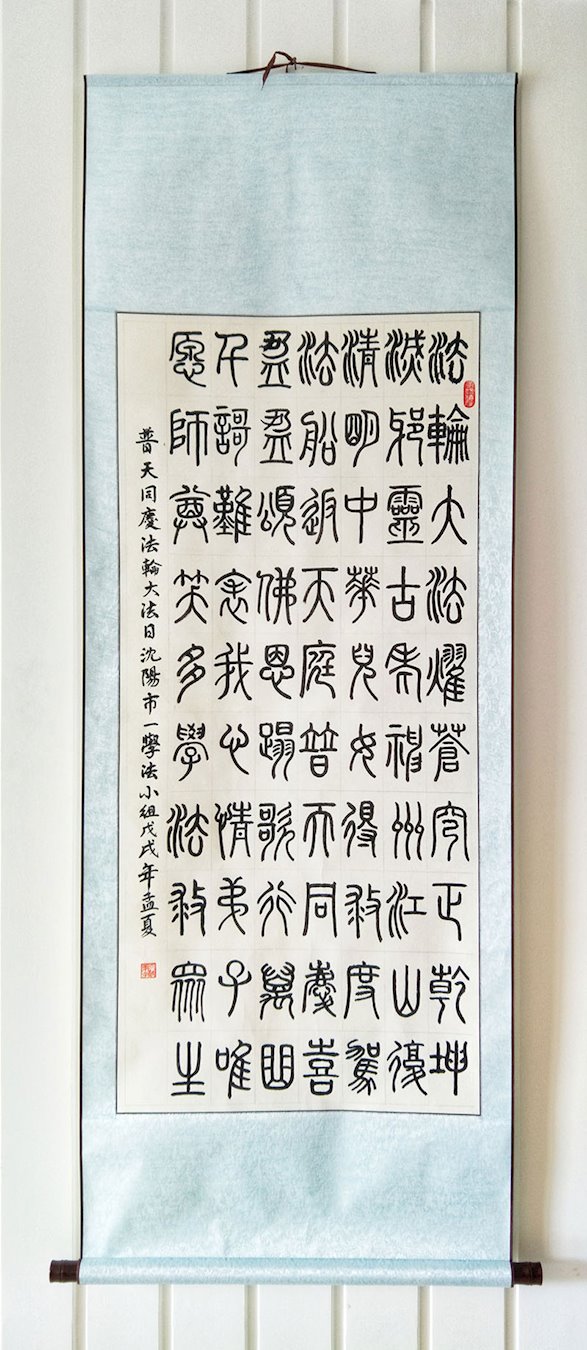 法輪大法燿蒼穹正乾坤
滅邪靈古老神州江山復
清明中華兒女得救度駕
法船返天庭普天同慶喜
盈盈頌佛恩踏歌行萬曲
千謌難表我心情弟子唯
愿師尊笑多學法救眾生
普天同慶法輪大法日沈陽市一學法小組戊戌年孟夏